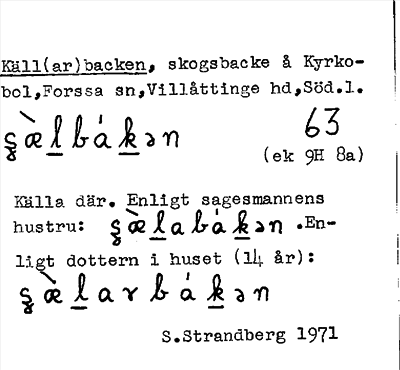 Käll(ar)backen, skogsbacke å Kyrko-
bol,Forssa sn,Villåttinge hd,Söd.l.
ʂæ̀lbákən 63
(ek 9H 8a)
Källa där. Enligt sagesmannens
hustru: ʂæ̀labákən .En-
ligt dottern i huset (14 år):
ʂæ̀larbákən
S.Strandberg 1971